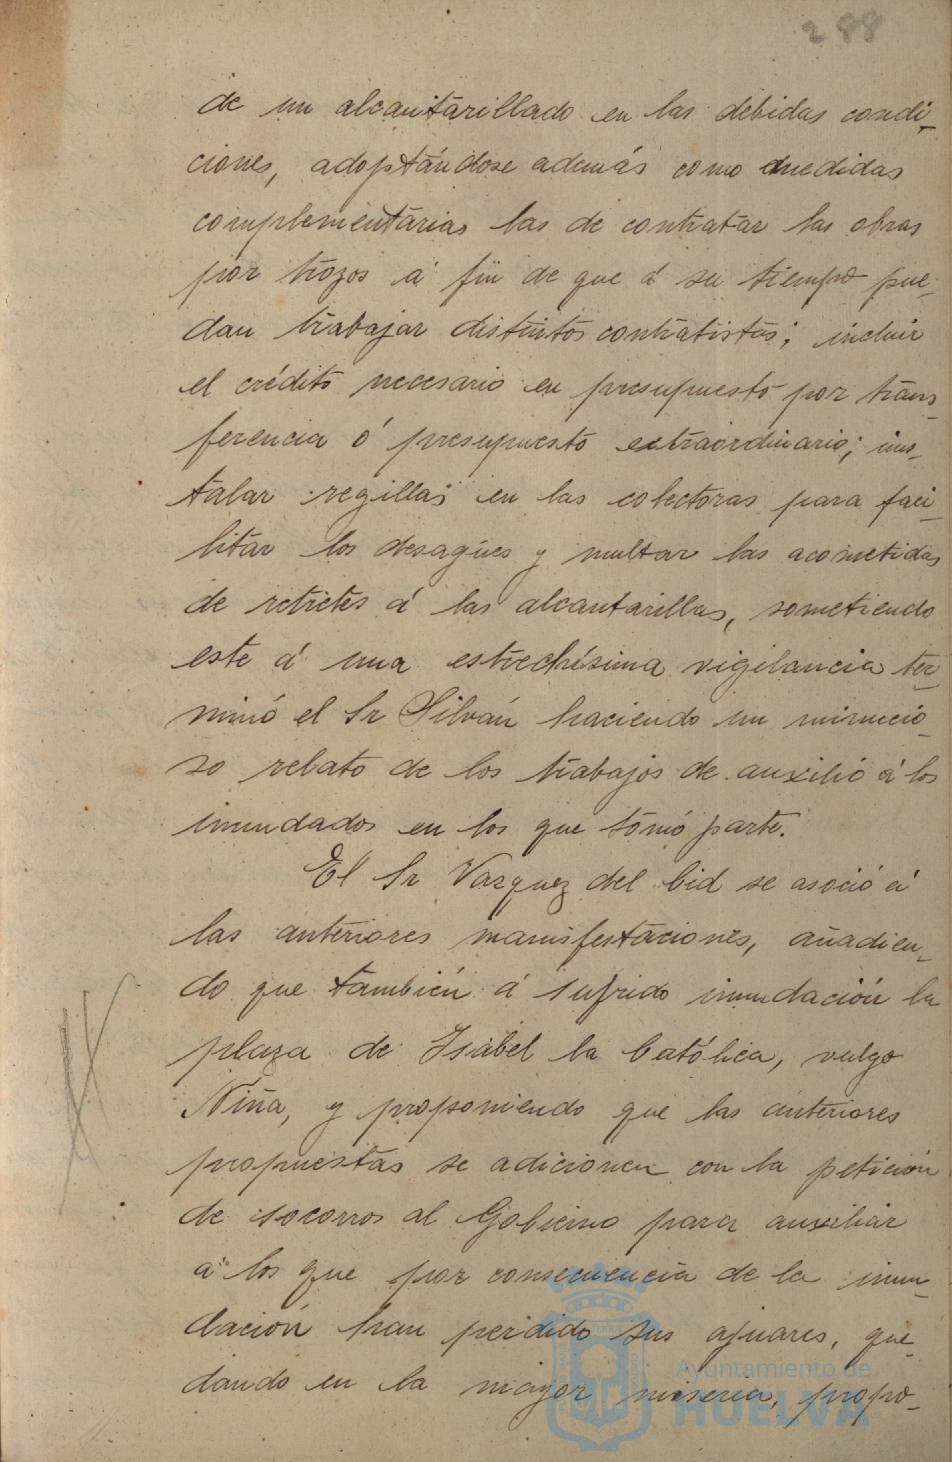 288
de un alcantarillado en las debidas condi-
ciones, adoptándose además como medidas
complementarias las de contratar las obras
por trozos á fin de que á su tiempo pue-
dan trabajar distintos contratistas; incluir
el crédito necesario en presupuesto por trans-
ferencia ó presupuesto extraordinario; ins-
talar regillas en las colectoras para faci-
litar los desagües y multar las acometidas
de retretes á las alcantarillas, sometiendo
este á una estrechísima vigilancia ter-
minó el Sr Silván haciendo un minucio-
so relato de los trabajos de auxilio á los
inundados en los que tomó parte.
El Sr Vazquez del Cid se asoció á
las anteriores manifestaciones, añadien-
do que también á sufrido inundación la
plaza de Isabel la Católica, vulgo
Niña, y proponiendo que las anteriores
propuestas se adicionen con la petición
de socorros al Gobierno para auxiliar
á los que por consecuencia de la inun-
dación han perdido sus ajuares, que-
dando en la mayor miseria, propo-
Ayuntamiento de
HUELVA